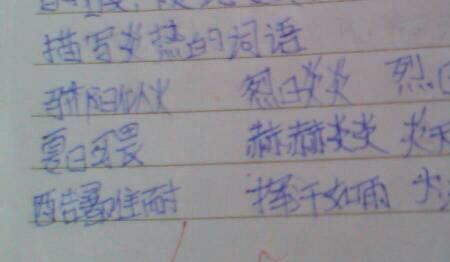 描写炎热的词语
骄阳似火 烈日炎炎 烈日
夏日可畏 赫赫炎炎 炎天
酷暑难耐 挥汗如雨